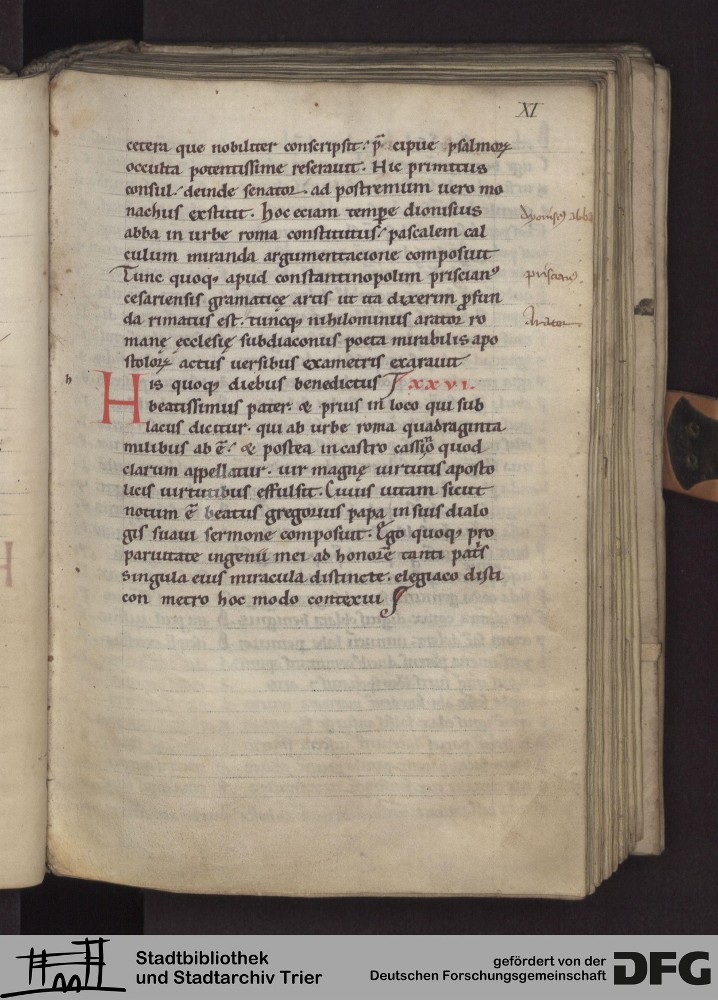 XI
cetera que nobiliter conscripsit. p̄ cipue psalmoꝝ
occulta potentissime reserauit. Hic primitus
consul. deinde senator. ad postremum uero mo
nachus exstitit. hoc eciam tempe dionisius
abba in urbe roma constitutus. pascalem cal
culum miranda argumentacione composuit
Tunc quoq; apud constantinopolim priscianꝰ
cesariensis gramaticę artis ut ita dixerim ꝓfun
da rimatus est. tuncq; nihilominus arator ro
manę ecclesię subdiaconus poeta mirabilis apo
stoloꝝ actus uersibus exametris exarauit
His quoq; diebus benedictus xxvi.
beatissimus pater. & prius in loco qui sub
lacus dicitur. qui ab urbe roma quadraginta
milibus ab ē. & postea in castro cassino quod
clarum appellatur. uir magnę uirtutis aposto
licis uirtutibus effulsit. Cuius uitam sicut
notum ē beatus gregorius papa in suis dialo
gis suaui sermone composuit. Ego quoq; pro
paruitate ingenii mei ad honorē tanti pat͛s
singula eius miracula distincte. elegiaco disti
con metro hoc modo contexui
dyonisiꝰ abba
priscianꝰ.
Arator
h
Stadtbibliothek
und Stadtarchiv Trier
gefördert von der
Deutschen Forschungsgemeinschaft
DFG